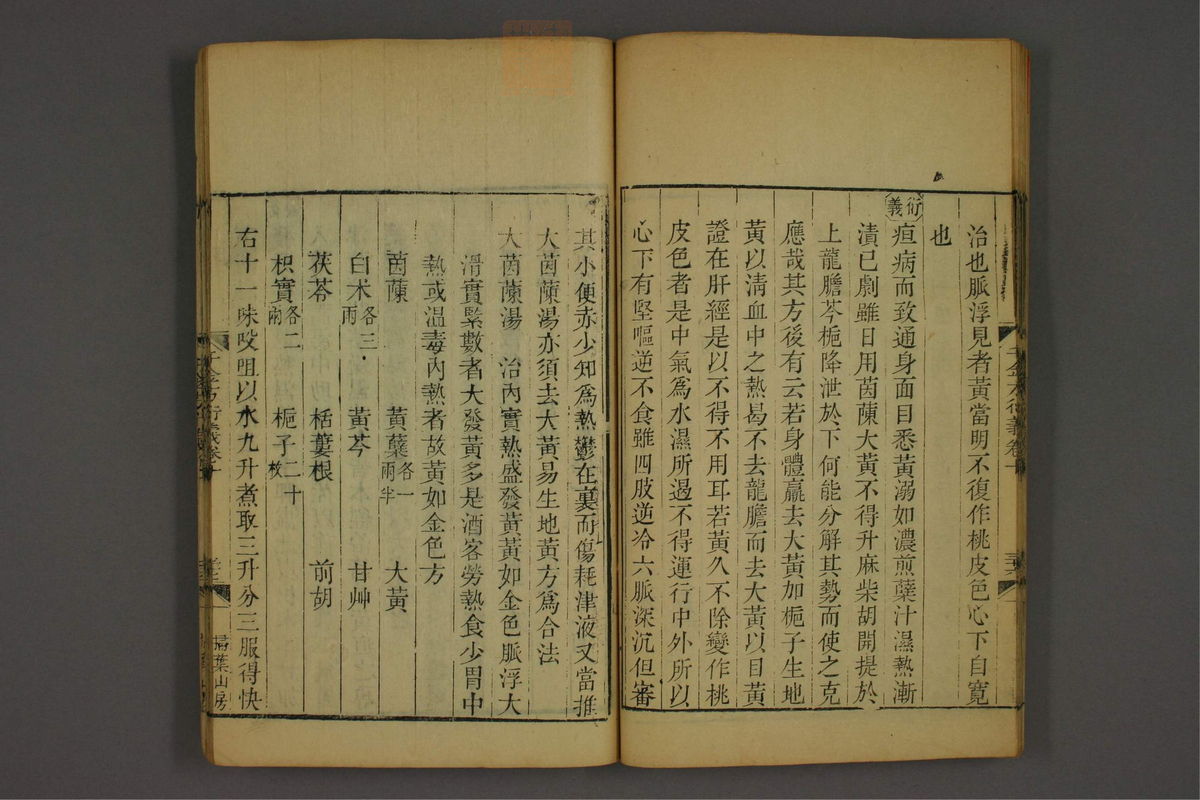 治也脈浮見者黃當明不復作桃皮色心下自寬
也
衍義
疸病而致通身面目悉黃溺如濃煎蘗汁濕熱漸
漬已劇雖日用茵蔯大黃不得升麻柴胡開提於
上龍膽芩梔降泄於下何能分解其勢而使之克
應哉其方後有云若身體羸去大黃加梔子生地
黃以清血中之熱曷不去龍膽而去大黃以目黃
證在肝經是以不得不用耳若黃久不除變作桃
皮色者是中氣為水濕所遏不得運行中外所以
心下有堅嘔逆不食雖四肢逆冷六脈深沉但審
千金方衍義卷十
其小便赤少知為熱鬱在裏而傷耗津液又當推
大茵蔯湯亦須去大黃易生地黃方為合法
大茵蔯湯 治內實熱盛發黃黃如金色脈浮大
滑實緊數者大發黃多是酒客勞熱食少胃中
熱或溫毒內熱者故黃如金色方
茵蔯 黃蘗各一兩半 大黃
白术各三兩 黃芩 甘艸
茯苓 栝蔞根 前胡
枳實各二兩 梔子二十枚
右十一味㕮咀以水九升煮取三升分三服得快
千金方衍義卷十
掃葉山房